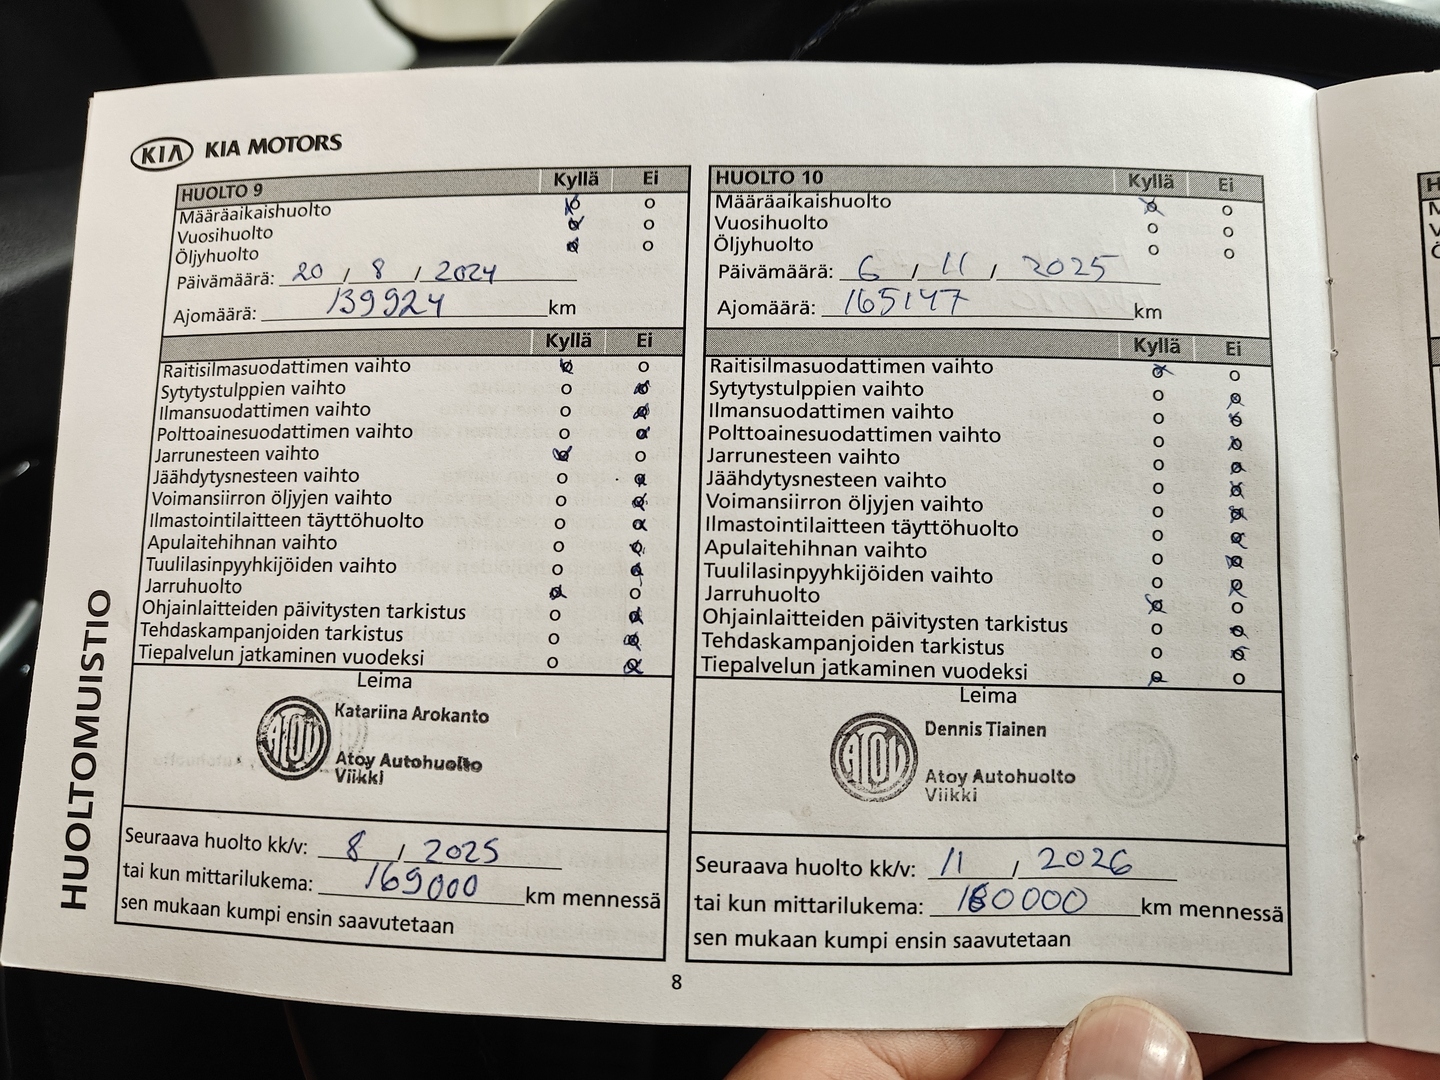 KIA KIA MOTORS
HUOLTOMUISTIO
HUOLTO 9 Kyllä Ei
Määräaikaishuolto o
Vuosihuolto o
Öljyhuolto o
Päivämäärä: 20 / 8 / 2024
Ajomäärä: 139924 km
Kyllä Ei
Raitisilmasuodattimen vaihto o
Sytytystulppien vaihto o
Ilmansuodattimen vaihto o
Polttoainesuodattimen vaihto o
Jarrunesteen vaihto o
Jäähdytysnesteen vaihto o
Voimansiirron öljyjen vaihto o
Ilmastointilaitteen täyttöhuolto o
Apulaitehihnan vaihto o
Tuulilasinpyyhkijöiden vaihto o
Jarruhuolto o
Ohjainlaitteiden päivitysten tarkistus o
Tehdaskampanjoiden tarkistus o
Tiepalvelun jatkaminen vuodeksi o
Leima
ATOY
Katariina Arokanto
Atoy Autohuolto
Viikki
Seuraava huolto kk/v: 8 / 2025
tai kun mittarilukema: 169000 km mennessä
sen mukaan kumpi ensin saavutetaan
HUOLTO 10 Kyllä Ei
Määräaikaishuolto o
Vuosihuolto o o
Öljyhuolto o o
Päivämäärä: 6 / 11 / 2025
Ajomäärä: 165147 km
Kyllä Ei
Raitisilmasuodattimen vaihto o
Sytytystulppien vaihto o
Ilmansuodattimen vaihto o
Polttoainesuodattimen vaihto o
Jarrunesteen vaihto o
Jäähdytysnesteen vaihto o
Voimansiirron öljyjen vaihto o
Ilmastointilaitteen täyttöhuolto o
Apulaitehihnan vaihto o
Tuulilasinpyyhkijöiden vaihto o
Jarruhuolto o
Ohjainlaitteiden päivitysten tarkistus o
Tehdaskampanjoiden tarkistus o
Tiepalvelun jatkaminen vuodeksi o
Leima
ATOY
Dennis Tiainen
Atoy Autohuolto
Viikki
Seuraava huolto kk/v: 11 / 2026
tai kun mittarilukema: 180000 km mennessä
sen mukaan kumpi ensin saavutetaan
8